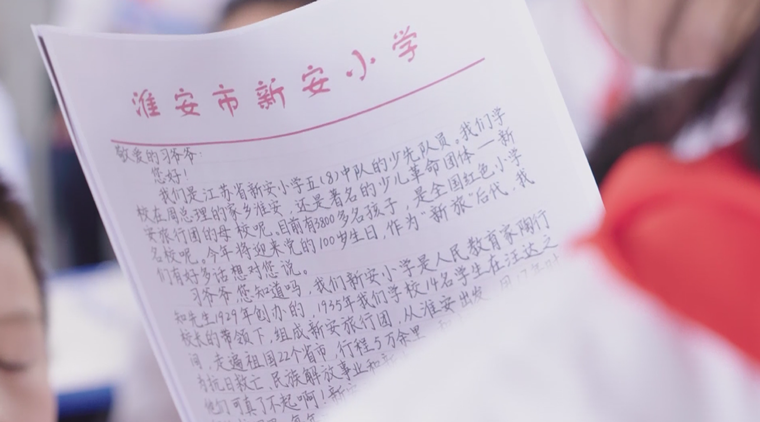 淮安市新安小学
敬爱的习爷爷:
您好!
我们是江苏省新安小学五(8)中队的少先队员。我们学
校在周总理的家乡淮安,还是著名的少儿革命团体——新
安旅行团的母校呢。目前有3800多名孩子,是全国红色小学
名校呢。今年将迎来党的100岁生日,作为“新旅”后代,我
们有好多话想对您说。
习爷爷,您知道吗,我们新安小学是人民教育家陶行
知先生1929年创办的,1935年我们学校14名学生在汪达之
校长的带领下,组成新安旅行团,从淮安出发
间,走遍祖国22个省市,行程5万余里
为抗日救亡、民族解放事业和新
他们可真了不起啊!新